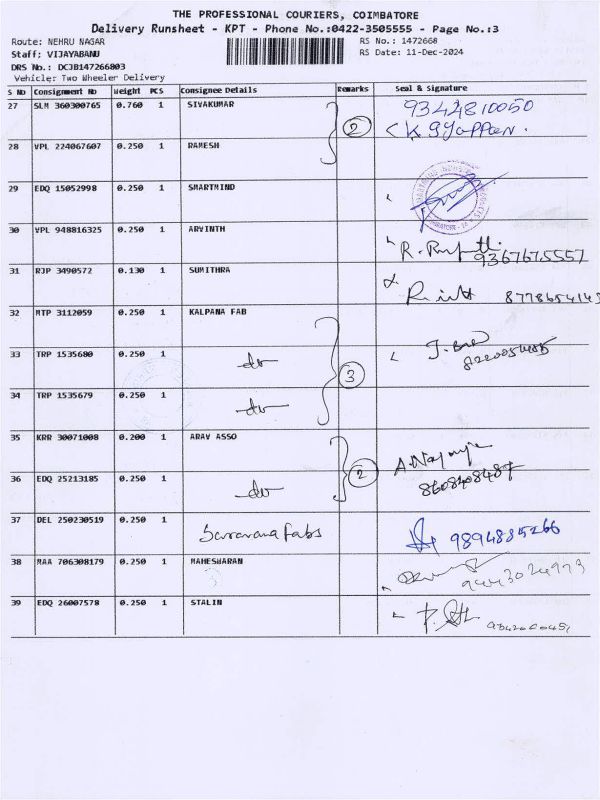 THE PROFESSIONAL COURIERS, COIMBATORE
Delivery Runsheet - KPT - Phone No.:0422-3505555 - Page No.:3
Route: NEHRU NAGAR RS No.: 1472668
Staff: VIJAYABANU RS Date: 11-Dec-2024
DRS No.: DCJB147266803
Vehicle: Two Wheeler Delivery
S No Consignment No Weight PCS Consignee Details Remarks Seal & Signature
27 SLM 360300765 0.760 1 SIVAKUMAR 2 9344810050
28 VPL 224067607 0.250 1 RAMESH
29 EDQ 15052998 0.250 1 SMARTMIND
30 VPL 948816325 0.250 1 ARVINTH 9367675557
31 RJP 3490572 0.130 1 SUMITHRA
32 MTP 3112059 0.250 1 KALPANA FAB
33 TRP 1535680 0.250 1 do 3
34 TRP 1535679 0.250 1 do
35 KRR 30071008 0.200 1 ARAV ASSO 2
36 EDQ 25213185 0.250 1 do
37 DEL 250230519 0.250 1 Saravana Fabs 9894885266
38 MAA 706308179 0.250 1 MAHESHARAN
39 EDQ 26007578 0.250 1 STALIN